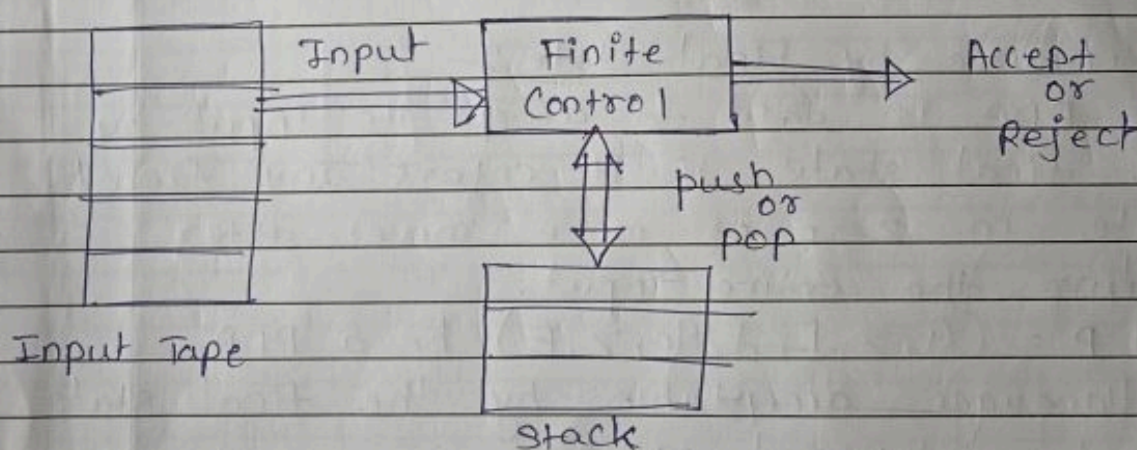 Input
Finite
Control
Accept
or
Reject
push
or
pop
Input Tape
stack